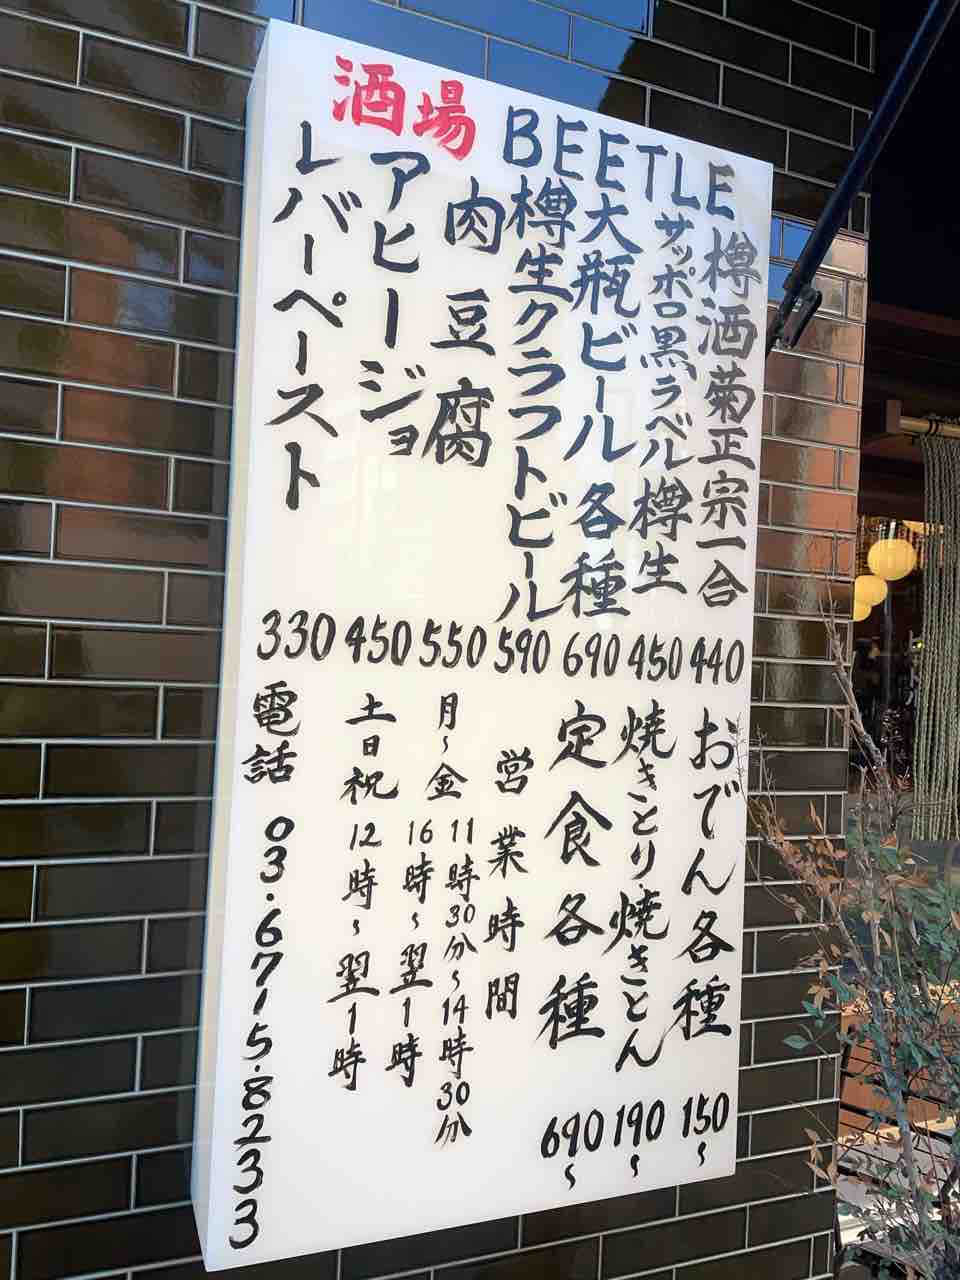 酒場 BEETLE
樽酒菊正宗一合 440
サッポロ黒ラベル樽生 450
大瓶ビール 各種 690
樽生クラフトビール 590
肉豆腐 550
アヒージョ 450
レバーペースト 330
おでん各種 150～
焼きとり焼きとん 190～
定食各種 690～
営業時間
月～金 11時30分～14時30分
16時～翌1時
土日祝 12時～翌1時
電話 03.6715.8233